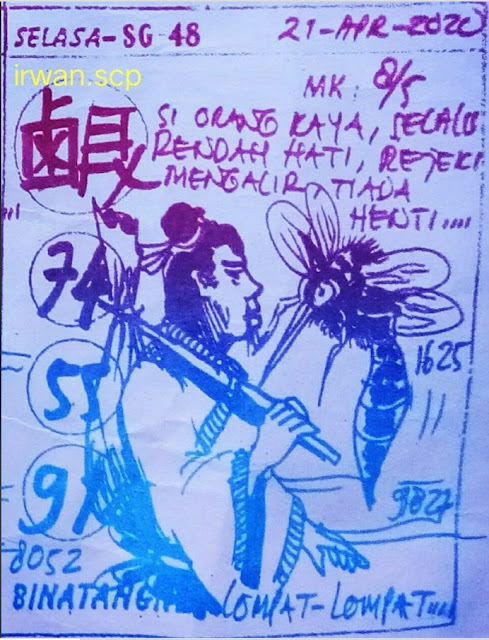 SELASA-SG 48
21-APR-2020
irwan.scp
MK: 8/5
SI ORANG KAYA, SELALU
RENDAH HATI, REJEKI
MENGALIR TIADA
HENTI....
74
57
1625
91
9827
8052
BINATANG
LOMPAT-LOMPAT....